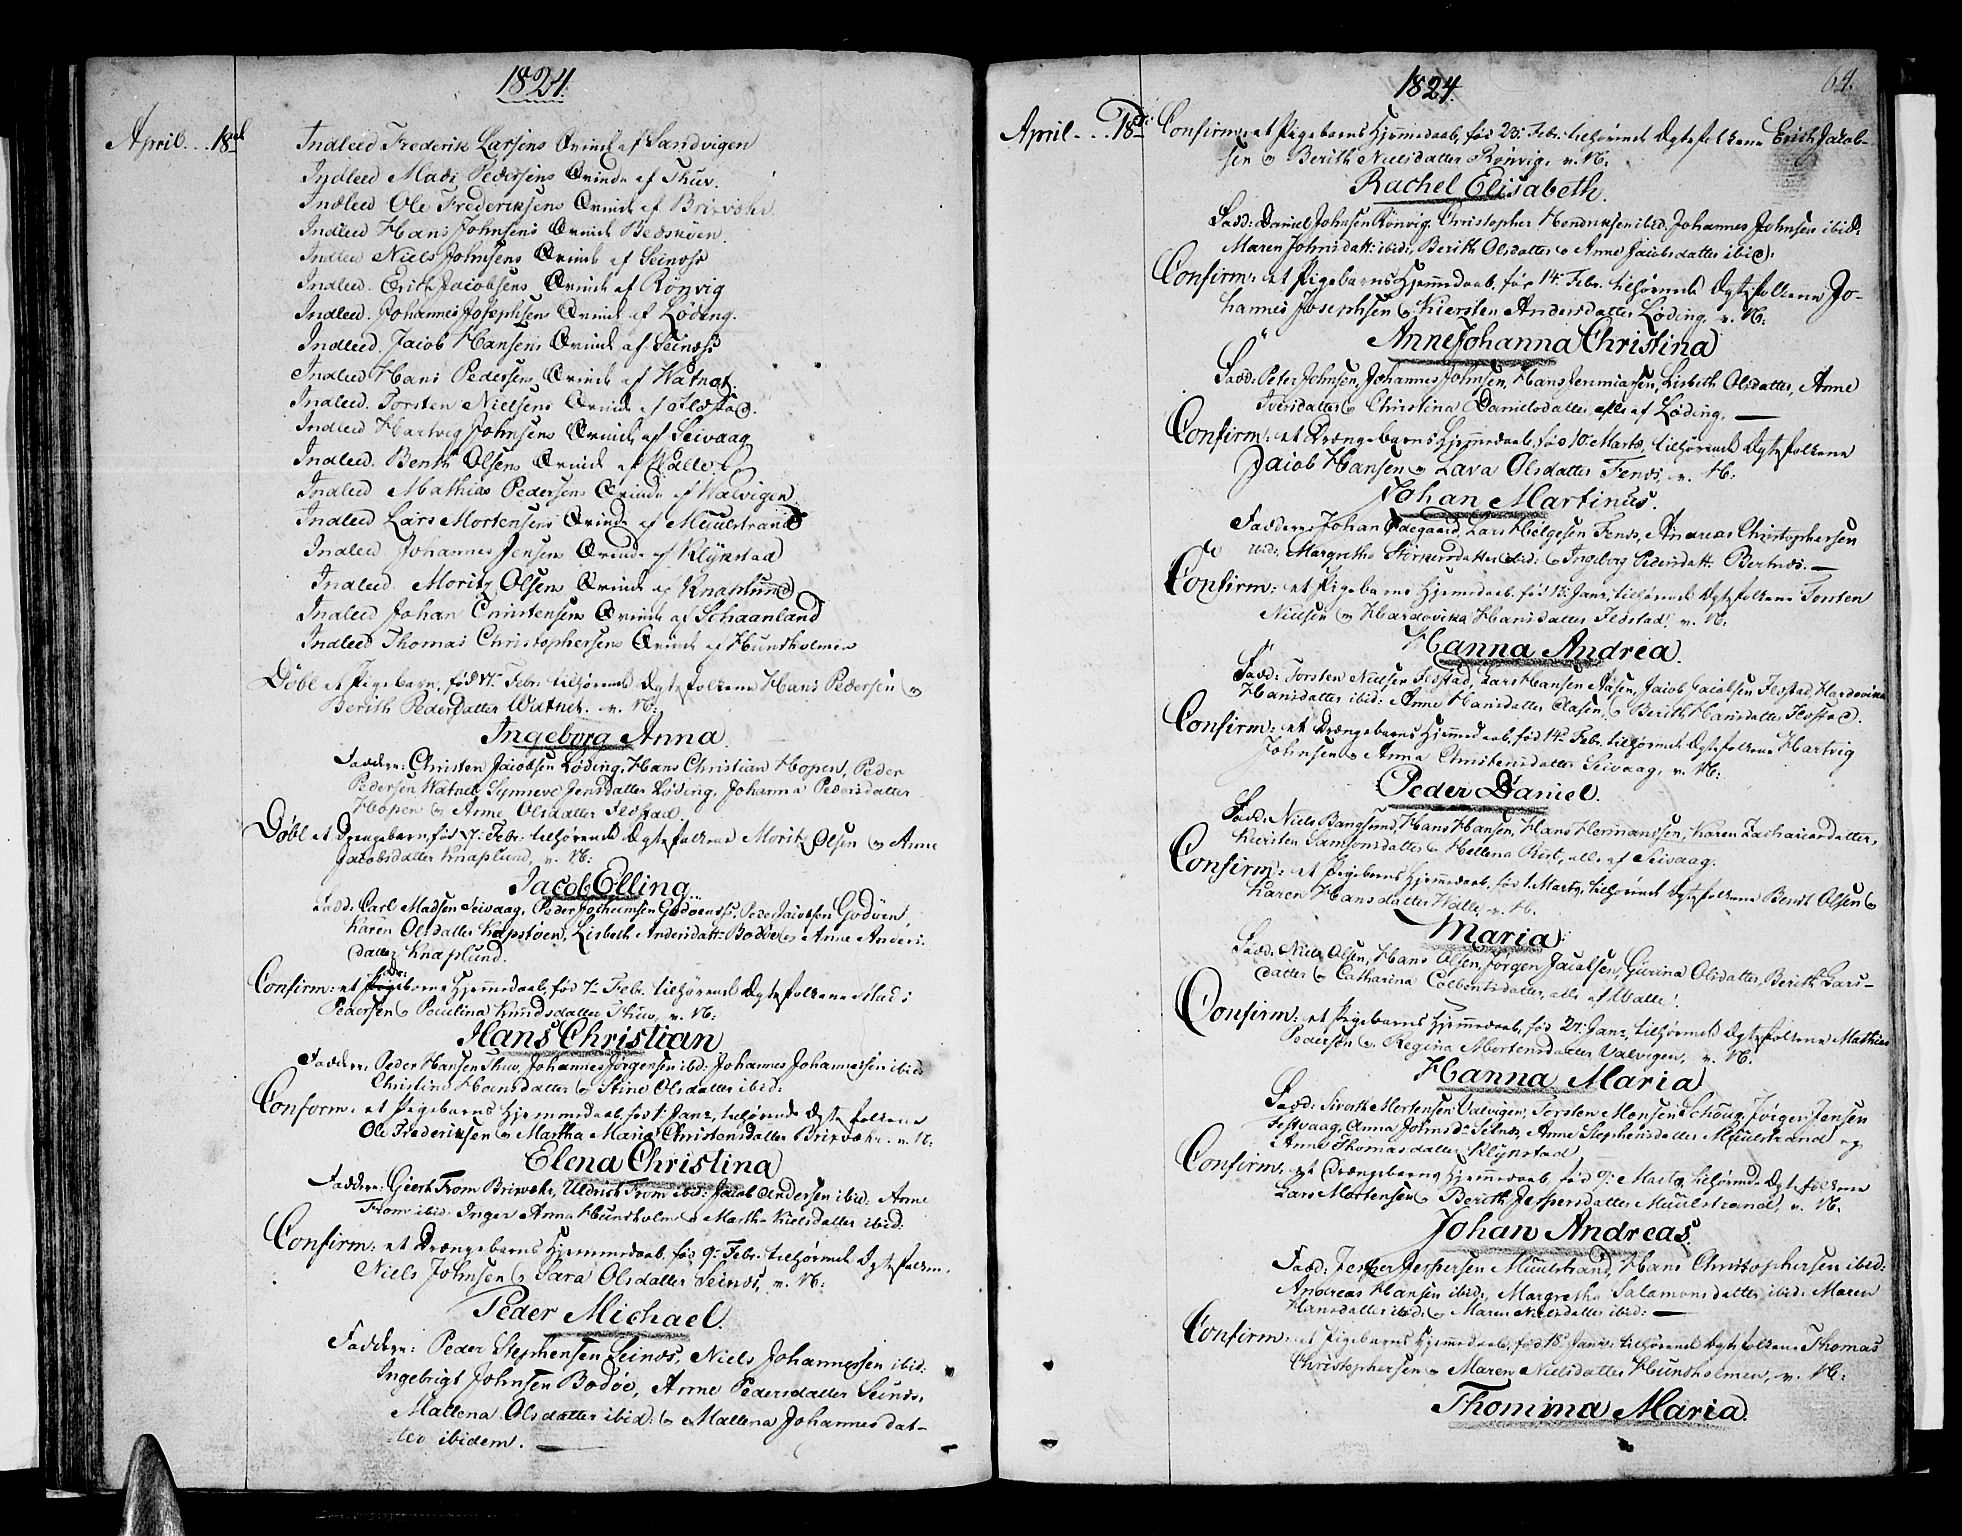 1824.
April . . . 18de
Indleed Frederik Larsens Qvinde af Sandvigen
Indleed Mads Pedersens Qvinde af Thuv.
Indleed Ole Frederiksens Qvinde af Brixvær
Indleed Hans Johnsens Qvinde Bedskoen.
Indleed Niels Johnsens Qvinde af Seinæs
Indleed. Erich Jacobsens Qvinde af Rönvig
Indleed. Johannes Josephsens Qvinde af Löding.
Indleed. Jacob Hansens Qvinde af Seinæs
Indleed Hans Pedersens Qvinde af Watnet.
Indleed. Torsten Nielsens Qvinde af Ilstad.
Indleed Hartvig Johnsens Qvinde af Seivaag
Indleed. Bendt Olsens Qvinde af Walle
Indleed Mathias Pedersens Qvinde af Walvigen
Indleed Lars Mortensens Qvinde af Muulstrand
Indleed Johannes Jensens Qvinde af Klÿnstad
Indleed. Moritz Olsens Qvinde af Knaplund
Indleed Johan Christensens Qvinde af Schaanland
Indleed Thomas Christophersens Qvinde af Hundholmen
Döbt et Pigebarn, fød Febr. tilhørende Ægtefolkene Hans Pedersen &
Berith Pedersdatter Watnet. v. N:
Ingeborg Anna.
Faddere: Christen Jacobsen Löding, Hans Christian Hopen, Peder
Pedersen Watnet, Synneve Jensdatter Löding, Johanna Pedersdatter
Hopen & Anne Olsdatter Ilstad.
Döbt et Drengebarn, fød 7. Febr. tilhørende Ægtefolkene Moritz Olsen & Anne
Jacobsdatter Knaplund, v. N:
Jacob Elling.
Fadd: Carl Madsen Seivaag, Peder Godøenes, Peder Jacobsen Godøen
Karen Olsdatter Lisbeth Andersdatt: Bodøe & Anne Anders-
datter Knaplund.
Confirm: et barns Hjemmedaab, fød 7de Febr. tilhørende Ægtefolkene Mads
Pedersen & Paulina Knudsdatter Thuv, v. N:
Hans Christian
Faddere Peder Hansen Thuv, Johannes Jörgensen ibid: Johannes Johannessen ibid:
Christine Hansdatter & Stine Olsdatter ibid:
Conform: et Pigebarns Hjemmedaab, fød 1. Janr, tilhørende Ægtefolkene
Ole Frederiksen & Martha Maria Christensdatter Brixvær. v. N:
Elena Christina
Faddere: Giert From Brixvær, Uldrich From ibid: Jacob Andersen ibid. Anne
From ibid. Inger Anna Hundholm & Martha Nielsdatter ibid:
Confirm: et Drængebarns Hjemmedaab, fød 9. Febr. tilhørende Ægtefolkene
Niels Johnsen & Sara Olsdatter Seinæs, v. N:
Peder Michael.
Faddere: Peder Stephensen Seinæs, Niels Johannessen ibid:
Ingebrigt Johnsen Bodöe, Anne Pedersdatter Seinæs,
Mallena Olsdatter ibid: & Mallena Johannesdat-
ter ibidem.
1824.
64.
April . . . 18de
Confirm: et Pigebarns Hjemmedaab, fød 23. Febr. tilhørende Ægtefolkene Erich Jacob-
sen & Berith Nielsdatter Rönvig, v. N:
Rachel Elisabeth.
Fadd: Daniel Johnsen Rönvig, Christopher Hendriksen ibid, Johannes Johnsen ibid:
Maren Johnsdatt: ibid: Berith Olsdatter & Anne Jacobsdatter ibid:
Confirm: et Pigebarns Hjemmedaab, fød 14. Febr. tilhørende Ægtefolkene Jo-
hannes Josephsen & Kiersten Andersdatter Löding. v. N:
Anne Johanna Christina
Fadd: Peter Johnsen, Johannes Johnsen, Hans Jeremiasen, Lisbeth Olsdatter, Anne
Iversdatter & Christina Danielsdatter alle af Löding.
Confirm: et Drængebarns Hjemmedaab, fød 10. Marts, tilhørende Ægtefolkene
Jacob Hansen & Lava Olsdatter Fenæs, v. N:
Johan Martinus.
Faddere Johan Ødegaard, Lars Helgesen Fenæs, Andreas Christophersen
ibid: Margrethe ibid: & Ingeborg Pedersdatt: Bertnæs.
Confirm: et Pigebarns Hjemmedaab, fød Janr, tilhørende Ægtefolkene Torsten
Nielsen & Hardovika Hansdatter Ilstad! v. N:
Hanna Andrea.
Fadd: Torsten Nielsen Ilstad, Lars Hansen Aasen, Jacob Jacobsen Ilstad, Hardovika
Hansdatter ibid: Anne Hansdatter Aasen, & Berith Hansdatter Ilstad.
Confirm: et Drængebarns Hjemmedaab, fød 14de Febr. tilhørende Ægtefolkene Hartvig
Johnsen & Anna Christensdatter Seivaag, v. N:
Peder Daniel.
Fadd: Niels Bangsund, Hans Hansen, Hans Hermansen, Karen Zachariasdatter,
Kiersten Samsonsdatter & Hellena alle af Seivaag.
Confirm: et Pigebarns Hjemmedaab, fød 1. Marts, tilhørende Ægtefolkene Bendt Olsen &
Karen Hansdatter Walle, v. N.
Maria.
Fadd: Niels Olsen, Hans Olsen, Jörgen Jacobsen, Gurina Olsdatter, Berith Lars-
datter & Catharina Colbentsdatter, alle af Walle!
Confirm: et Pigebarns Hjemmedaab, fød 27. Janr, tilhørende Ægtefolkene Mathias
Pedersen & Regina Mortensdatter Valvigen, v. N.
Hanna Maria
Fadd: Sivert Mortensen Valvigen, Torsten Monsen Schaug, Jörgen Jensen
Festvaag, Anna Johnsdr Seinæs, Anne Stephensdatter Muulstrand og
Anne Thomasdatter Klÿnstad
Confirm: et Drængebarns Hjemmedaab fød 9. Marts, tilhørende Ægtefolkene
Lars Mortensen & Berith Jespersdatter Muulstrand, v. N.
Johan Andreas.
Fadd: Jesper Jespersen Muulstrand, Hans Christophersen ibid:
Andreas Hansen ibid: Margrethe Salamonsdatter ibid: Maren
Hansdatter ibid: & Maren Nielsdatter ibid:
Confirm: et Pigebarns Hjemmedaab, fød 18. Janr: tilhørende Ægtefolkene Thomas
Christophersen & Maren Nielsdatter Hundholmen, v. N:
Thomina Maria.